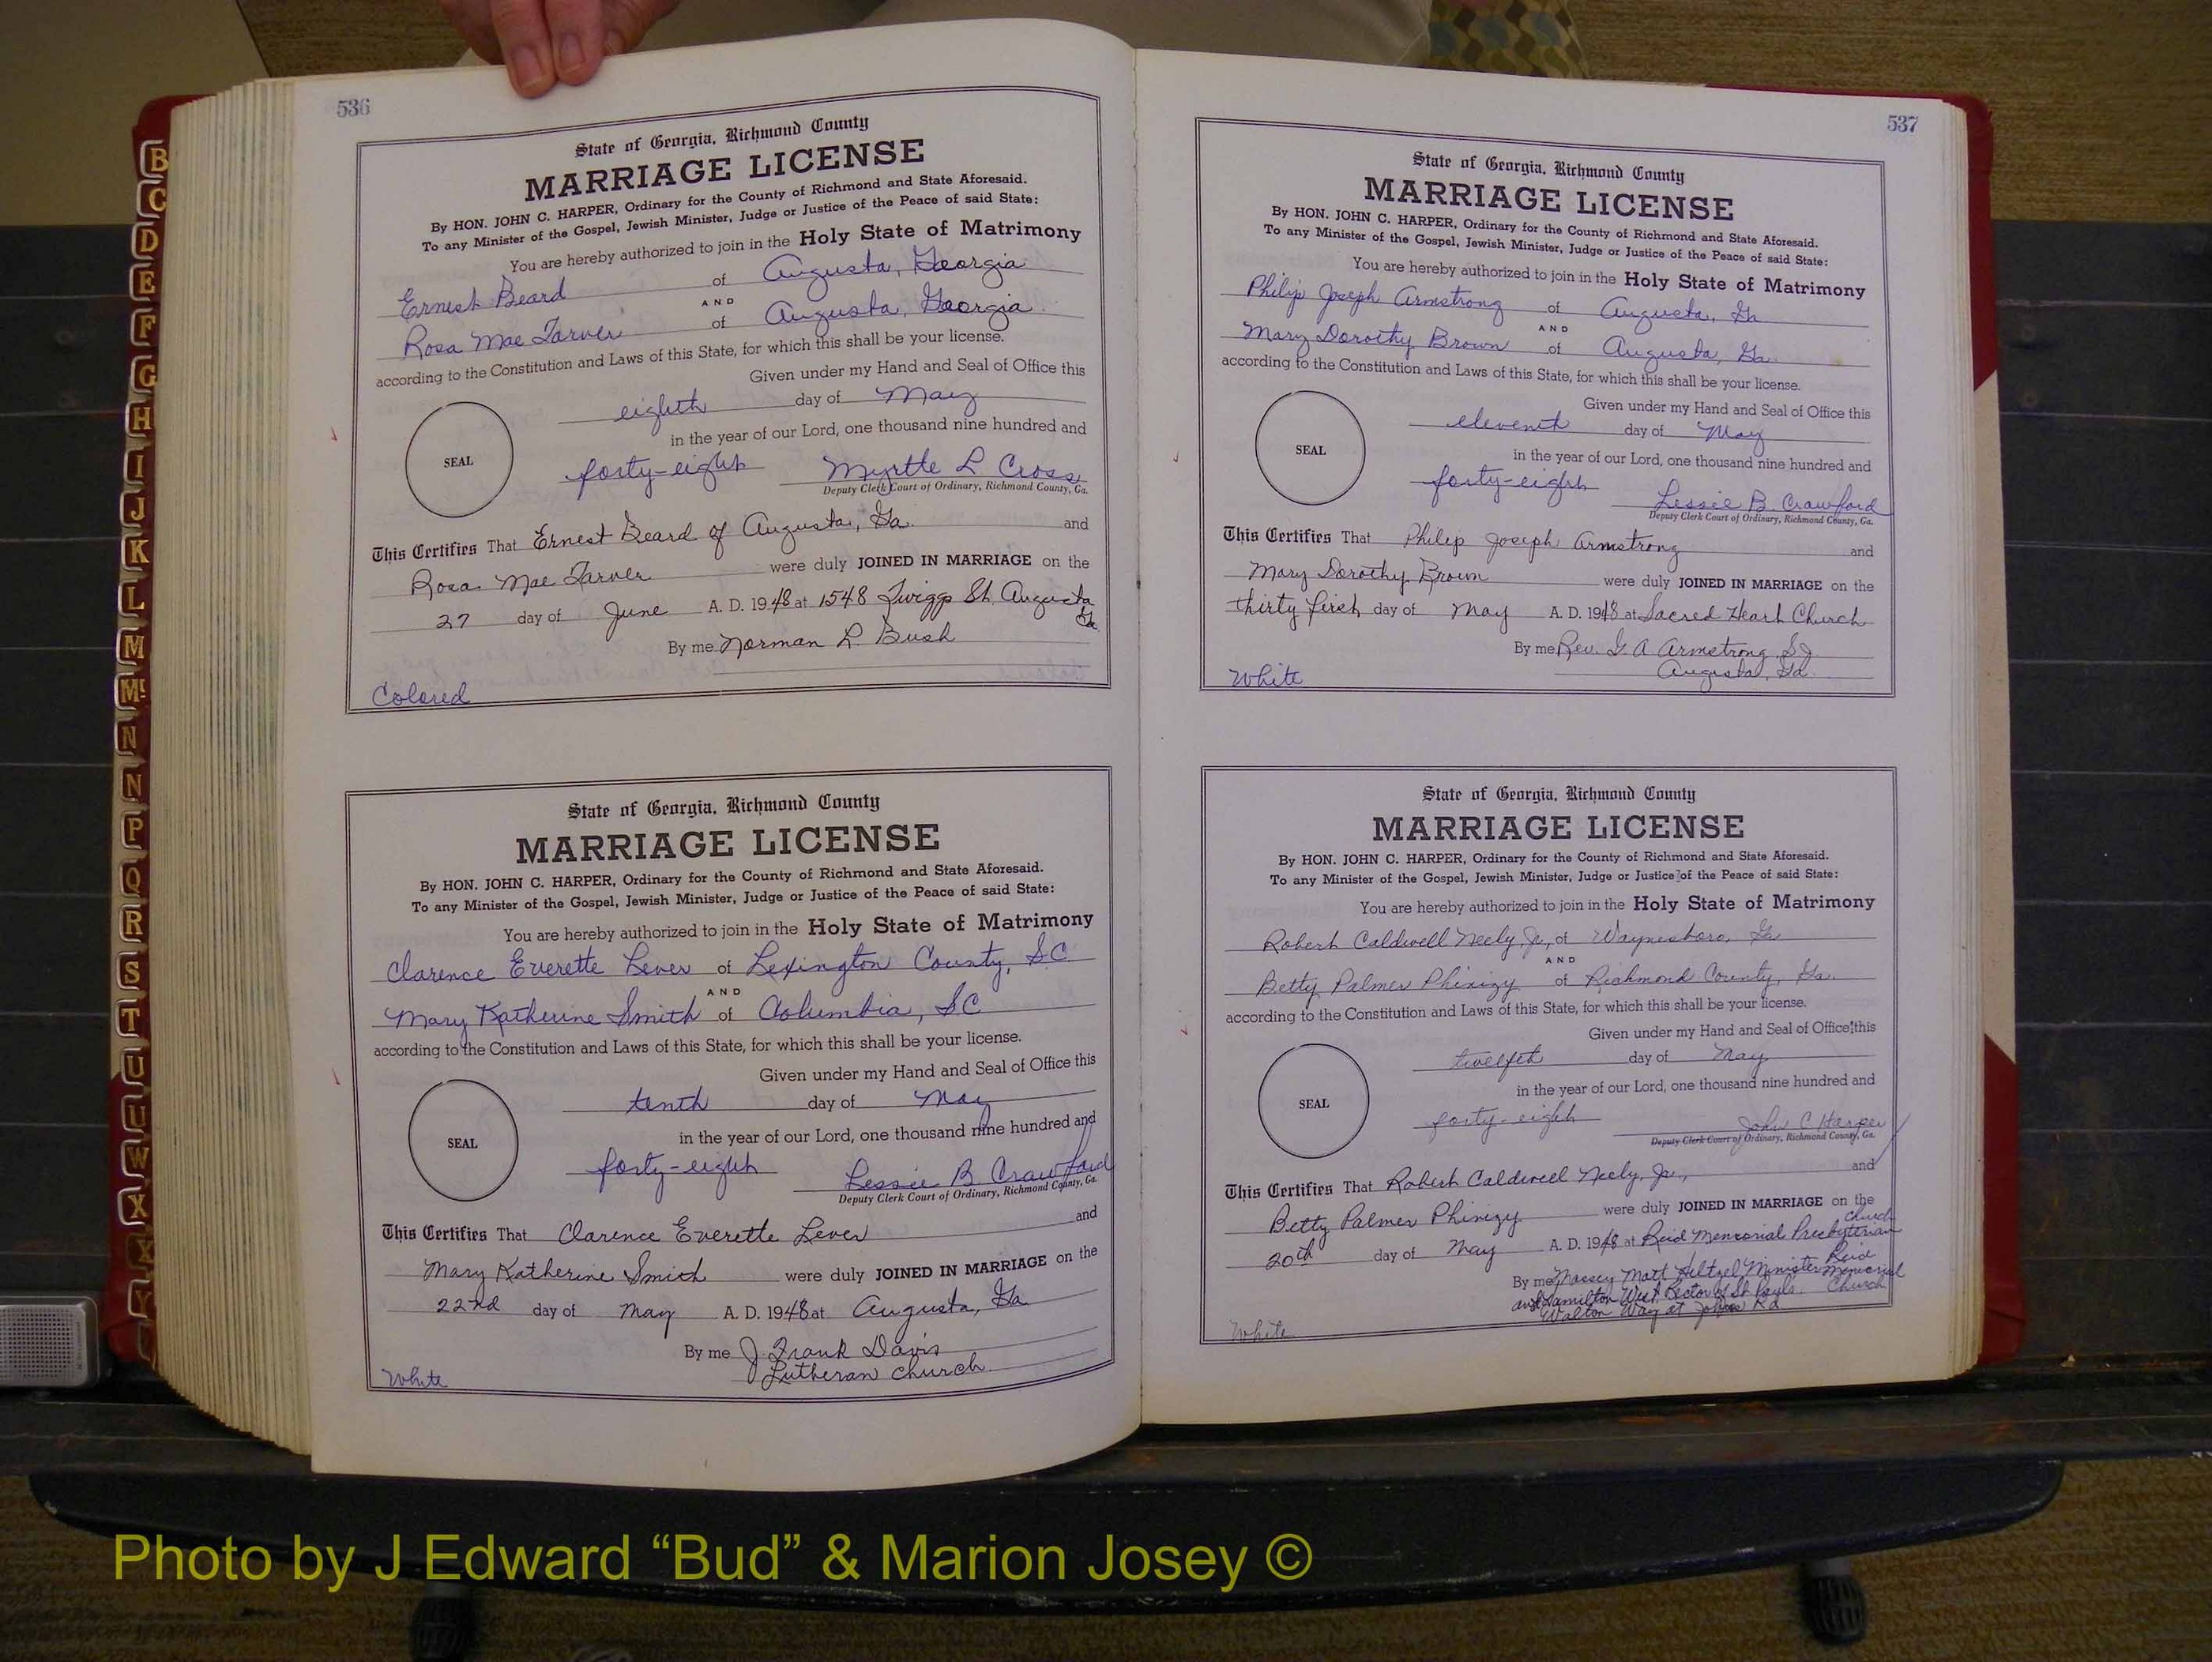 536
State of Georgia, Richmond County
MARRIAGE LICENSE
By HON. JOHN C. HARPER, Ordinary for the County of Richmond and State Aforesaid.
To any Minister of the Gospel, Jewish Minister, Judge or Justice of the Peace of said State:
You are hereby authorized to join in the Holy State of Matrimony
Ernest Beard of Augusta, Georgia
AND
Rosa Mae Tarver of Augusta, Georgia
according to the Constitution and Laws of this State, for which this shall be your license.
Given under my Hand and Seal of Office this
eighth day of May
in the year of our Lord, one thousand nine hundred and
SEAL
forty-eight Myrtle L Cross
Deputy Clerk Court of Ordinary, Richmond County, Ga.
This Certifies That Ernest Beard of Augusta, Ga. and
Rosa Mae Tarver were duly JOINED IN MARRIAGE on the
27 day of June A. D. 1948 at 1548 Twiggs St. Augusta
Ga.
By me Norman L. Bush
Colored
State of Georgia, Richmond County
MARRIAGE LICENSE
By HON. JOHN C. HARPER, Ordinary for the County of Richmond and State Aforesaid.
To any Minister of the Gospel, Jewish Minister, Judge or Justice of the Peace of said State:
You are hereby authorized to join in the Holy State of Matrimony
Clarence Everette Lever of Lexington County, SC
AND
Mary Katherine Smith of Columbia, SC
according to the Constitution and Laws of this State, for which this shall be your license.
Given under my Hand and Seal of Office this
tenth day of May
in the year of our Lord, one thousand nine hundred and
SEAL
forty-eight Lessie B. Crawford
Deputy Clerk Court of Ordinary, Richmond County, Ga.
This Certifies That Clarence Everette Lever and
Mary Katherine Smith were duly JOINED IN MARRIAGE on the
22nd day of May A. D. 1948 at Augusta, Ga
By me J. Frank Davis
Lutheran church
White
537
State of Georgia, Richmond County
MARRIAGE LICENSE
By HON. JOHN C. HARPER, Ordinary for the County of Richmond and State Aforesaid.
To any Minister of the Gospel, Jewish Minister, Judge or Justice of the Peace of said State:
You are hereby authorized to join in the Holy State of Matrimony
Philip Joseph Armstrong of Augusta, Ga
AND
Mary Dorothy Brown of Augusta, Ga.
according to the Constitution and Laws of this State, for which this shall be your license.
Given under my Hand and Seal of Office this
eleventh day of May
in the year of our Lord, one thousand nine hundred and
SEAL
forty-eight Lessie B. Crawford
Deputy Clerk Court of Ordinary, Richmond County, Ga.
This Certifies That Philip Joseph Armstrong and
Mary Dorothy Brown were duly JOINED IN MARRIAGE on the
thirty first day of May A. D. 1948 at Sacred Heart Church
By me Rev. G. A Armstrong, S.J.
Augusta, Ga.
White
State of Georgia, Richmond County
MARRIAGE LICENSE
By HON. JOHN C. HARPER, Ordinary for the County of Richmond and State Aforesaid.
To any Minister of the Gospel, Jewish Minister, Judge or Justice of the Peace of said State:
You are hereby authorized to join in the Holy State of Matrimony
Robert Caldwell Neely, Jr., of Waynesboro, Ga
AND
Betty Palmer Phinizy of Richmond County, Ga.
according to the Constitution and Laws of this State, for which this shall be your license.
Given under my Hand and Seal of Office this
twelfth day of May
in the year of our Lord, one thousand nine hundred and
SEAL
forty-eight John C Harper
Deputy Clerk Court of Ordinary, Richmond County, Ga.
This Certifies That Robert Caldwell Neely, Jr., and
Betty Palmer Phinizy were duly JOINED IN MARRIAGE on the
church
20th day of May A. D. 1948 at Reid Memorial Presbyterian
By me Massey Mott Heltzel Minister Reid Memorial Church
and Hamilton West Rector of St Pauls.
Walton Way at Johns Rd
White
B
C
D
E
F
G
H
I
J
K
L
M
Mc
N
N
P
Q
R
S
T
U
U
W
X
X
Y
Photo by J Edward “Bud” & Marion Josey ©